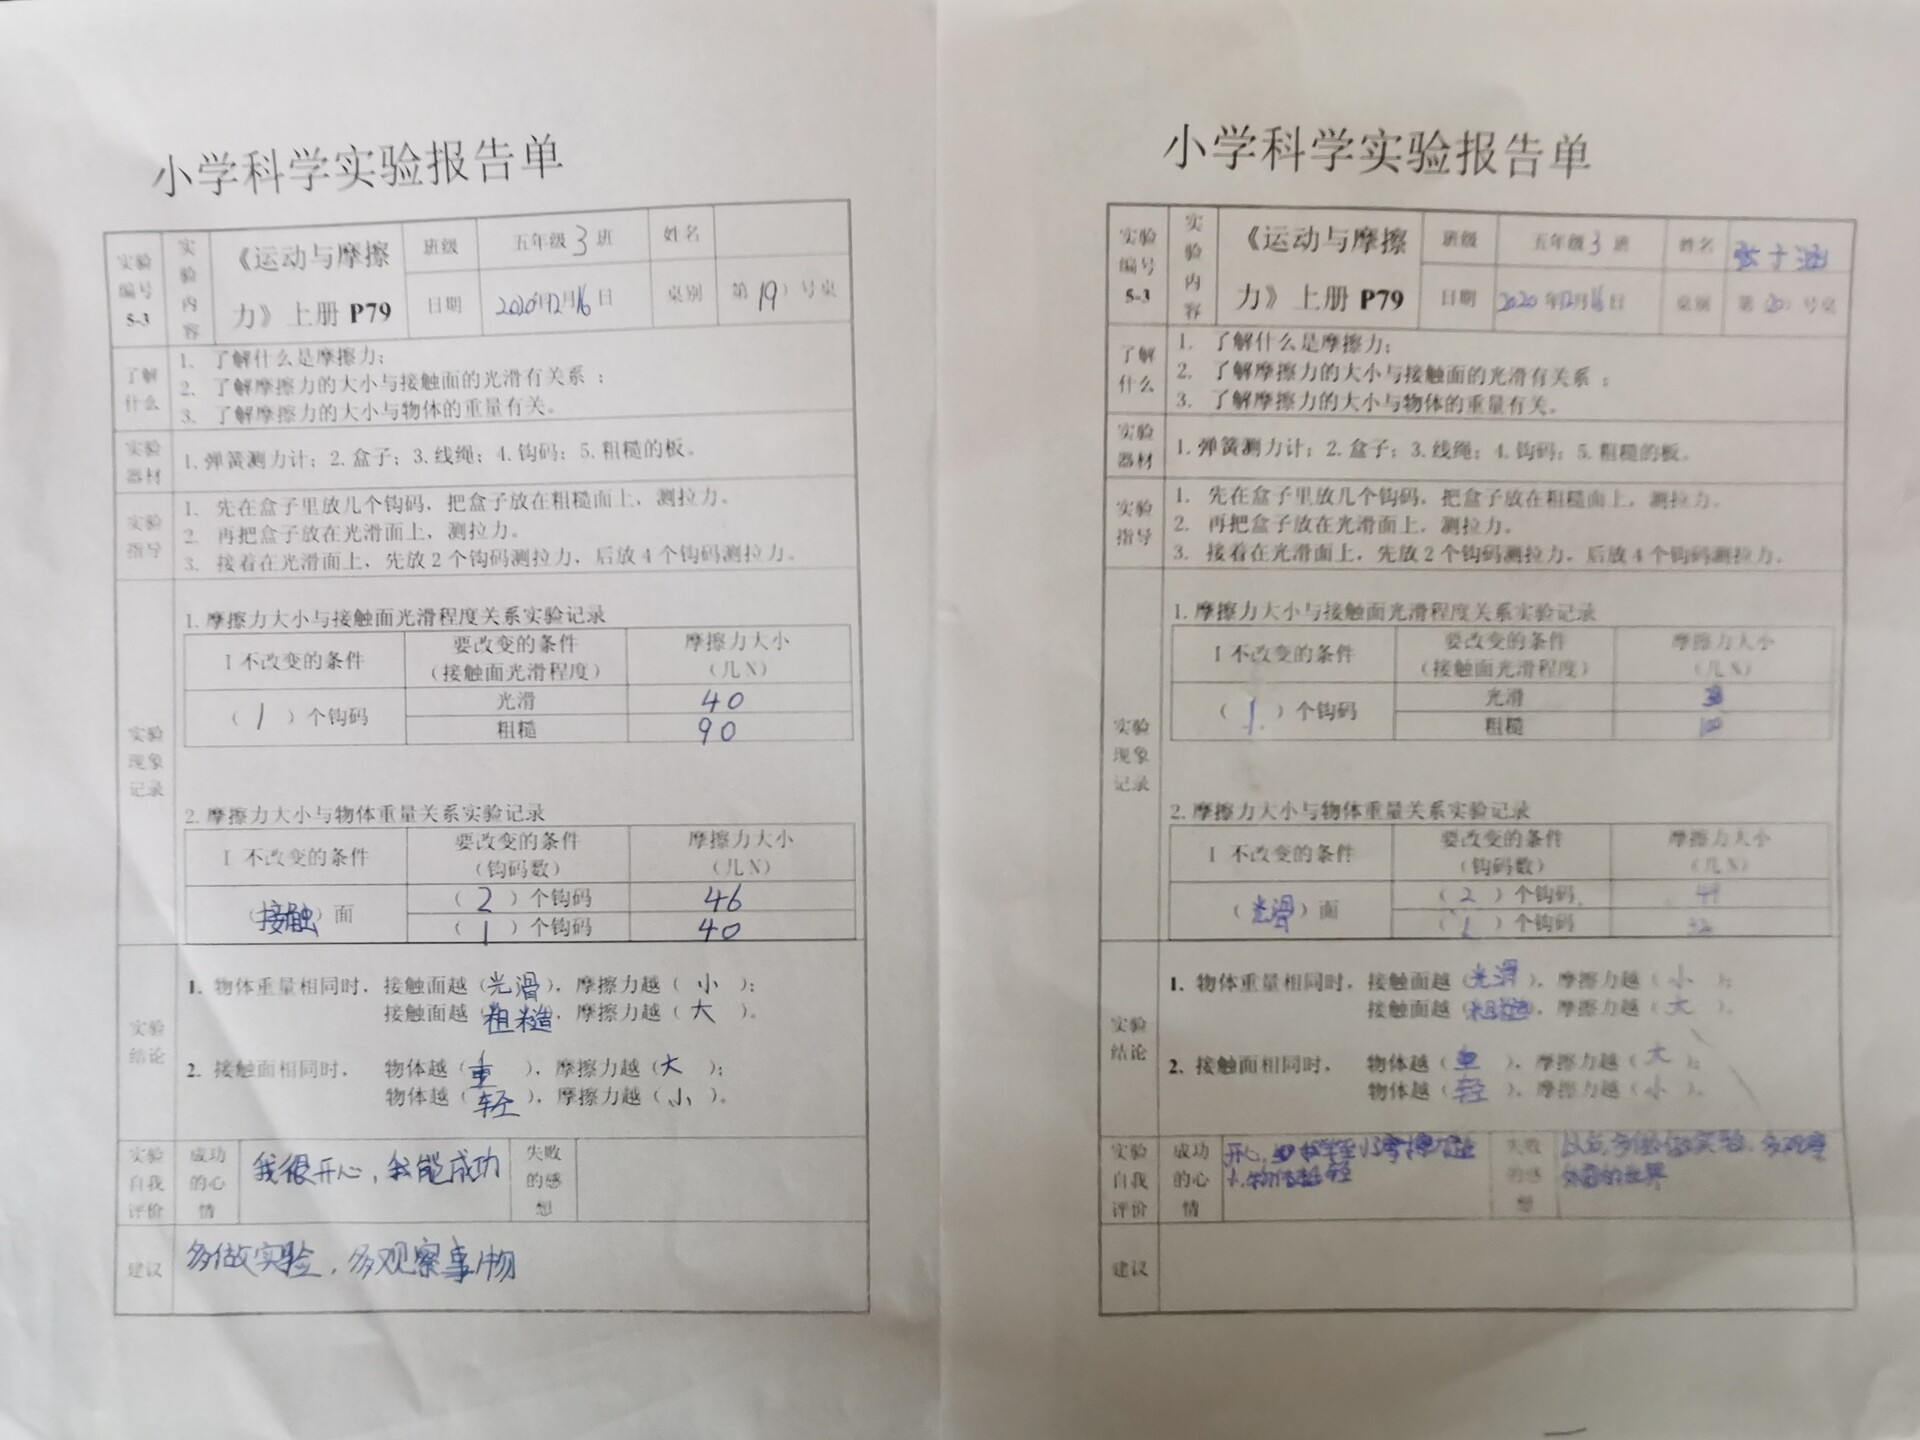 小学科学实验报告单
实验编号 5-3
实验内容
《运动与摩擦力》上册 P79
班级
五年级 3 班
姓名
日期
2020年12月16日
桌别
第(19)号桌
了解什么
1. 了解什么是摩擦力;
2. 了解摩擦力的大小与接触面的光滑有关系;
3. 了解摩擦力的大小与物体的重量有关。
实验器材
1.弹簧测力计; 2.盒子; 3.线绳; 4.钩码; 5.粗糙的板。
实验指导
1. 先在盒子里放几个钩码, 把盒子放在粗糙面上, 测拉力。
2. 再把盒子放在光滑面上, 测拉力。
3. 接着在光滑面上, 先放2个钩码测拉力, 后放4个钩码测拉力。
实验现象记录
1.摩擦力大小与接触面光滑程度关系实验记录
I 不改变的条件
要改变的条件(接触面光滑程度)
摩擦力大小(几N)
( 1 )个钩码
光滑
40
粗糙
90
2.摩擦力大小与物体重量关系实验记录
I 不改变的条件
要改变的条件(钩码数)
摩擦力大小(几N)
(接触)面
( 2 )个钩码
46
( 1 )个钩码
40
实验结论
1. 物体重量相同时, 接触面越(光滑), 摩擦力越( 小 );
接触面越(粗糙), 摩擦力越( 大 )。
2. 接触面相同时, 物体越( 重 ), 摩擦力越( 大 );
物体越( 轻 ), 摩擦力越( 小 )。
实验自我评价
成功的心情
我很开心, 我能成功
失败的感想
建议
多做实验, 多观察事物
小学科学实验报告单
实验编号 5-3
实验内容
《运动与摩擦力》上册 P79
班级
五年级 3 班
姓名
日期
2020年12月16日
桌别
第(20)号桌
了解什么
1. 了解什么是摩擦力;
2. 了解摩擦力的大小与接触面的光滑有关系;
3. 了解摩擦力的大小与物体的重量有关。
实验器材
1.弹簧测力计; 2.盒子; 3.线绳; 4.钩码; 5.粗糙的板。
实验指导
1. 先在盒子里放几个钩码, 把盒子放在粗糙面上, 测拉力。
2. 再把盒子放在光滑面上, 测拉力。
3. 接着在光滑面上, 先放2个钩码测拉力, 后放4个钩码测拉力。
实验现象记录
1.摩擦力大小与接触面光滑程度关系实验记录
I 不改变的条件
要改变的条件(接触面光滑程度)
摩擦力大小(几N)
( 1 )个钩码
光滑
粗糙
2.摩擦力大小与物体重量关系实验记录
I 不改变的条件
要改变的条件(钩码数)
摩擦力大小(几N)
(光滑)面
( 2 )个钩码
( 1 )个钩码
实验结论
1. 物体重量相同时, 接触面越(光滑), 摩擦力越( 小 );
接触面越(粗糙), 摩擦力越( 大 )。
2. 接触面相同时, 物体越( 重 ), 摩擦力越( 大 );
物体越( 轻 ), 摩擦力越( 小 )。
实验自我评价
成功的心情
开心,
失败的感想
以后, 做实验, 多观察
外面的世界
建议